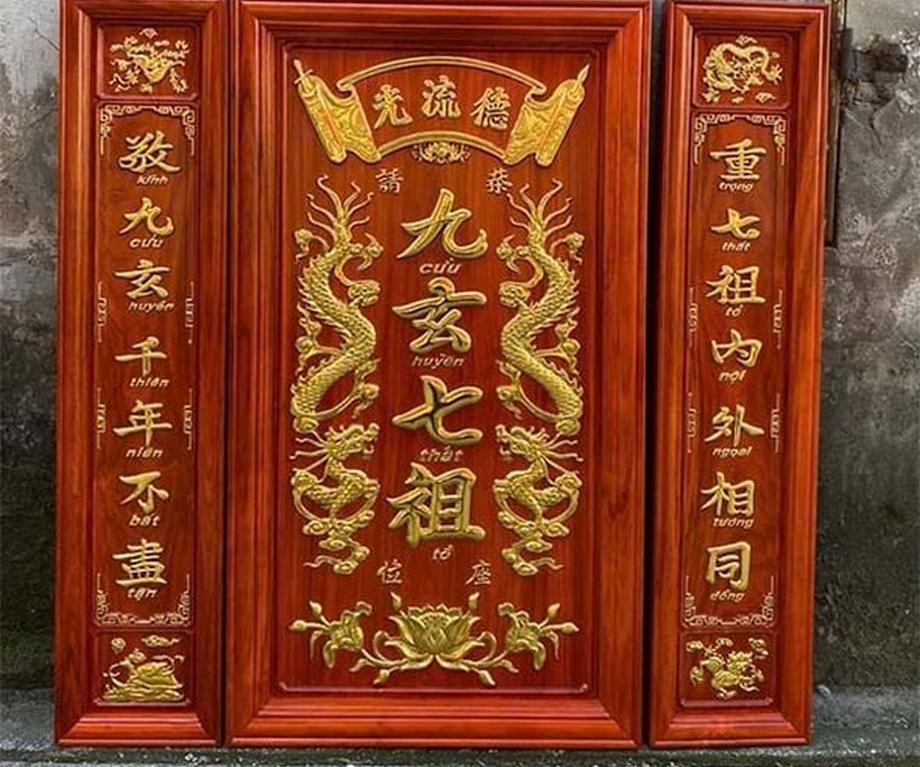 德流光
恭請
九玄七祖
cửu huyền thất tổ
座位
敬九玄千年不盡
kính cửu huyền thiên niên bất tận
重七祖內外相同
trọng thất tổ nội ngoại tương đồng